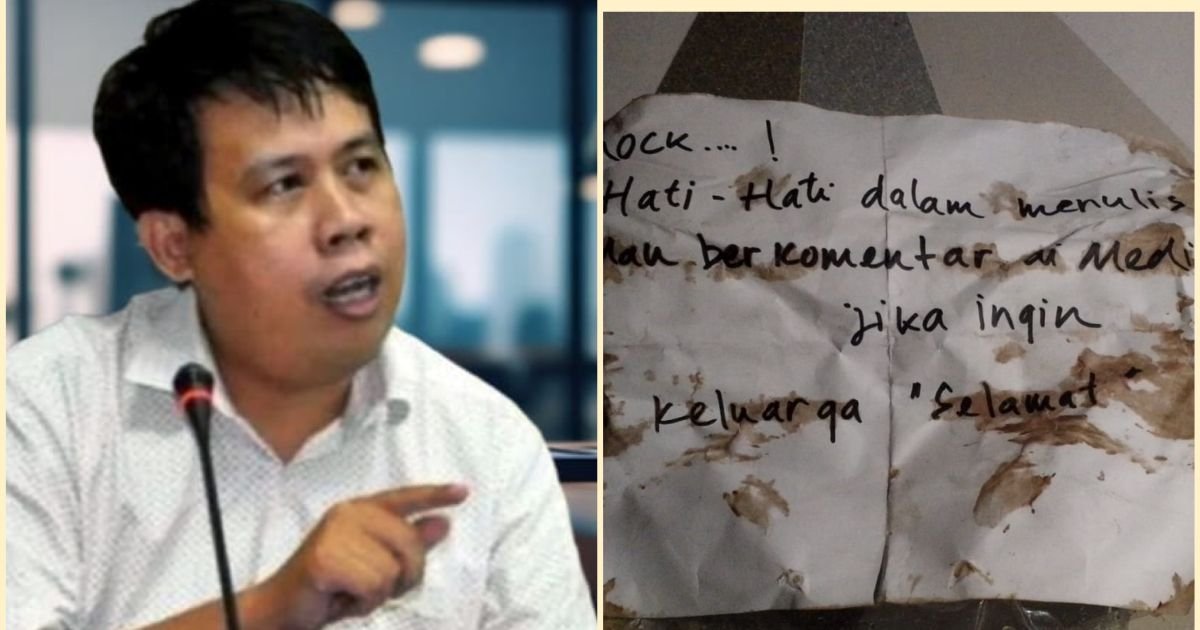 ock....!
Hati-Hati dalam menulis
dan berkomentar di Medi
jika ingin
keluarga "Selamat"